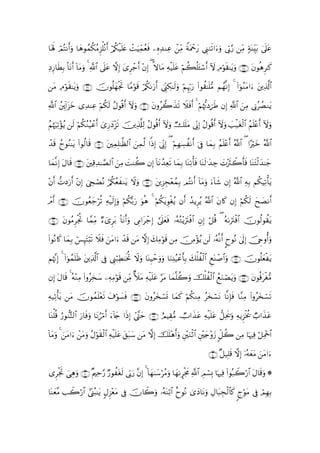 عَلَىٰ بَيِّنَةٍ مِّن رَّبِّى وَءَاتَىٰنِى رَحْمَةً مِّنْ عِندِهِۦ فَعُمِّيَتْ عَلَيْكُمْ أَنُلْزِمُكُمُوهَا وَأَنتُمْ لَهَا
كَٰرِهُونَ ﴿٢٨﴾ وَيَٰقَوْمِ لَآ أَسْـَٔلُكُمْ عَلَيْهِ مَالًا ۖ إِنْ أَجْرِىَ إِلَّا عَلَى ٱللَّهِ ۚ وَمَآ أَنَا۠ بِطَارِدِ
ٱلَّذِينَ ءَامَنُوٓا۟ ۚ إِنَّهُم مُّلَٰقُوا۟ رَبِّهِمْ وَلَٰكِنِّىٓ أَرَىٰكُمْ قَوْمًا تَجْهَلُونَ ﴿٢٩﴾ وَيَٰقَوْمِ مَن
يَنصُرُنِى مِنَ ٱللَّهِ إِن طَرَدتُّهُمْ ۚ أَفَلَا تَذَكَّرُونَ ﴿٣٠﴾ وَلَآ أَقُولُ لَكُمْ عِندِى خَزَآئِنُ ٱللَّهِ
وَلَآ أَعْلَمُ ٱلْغَيْبَ وَلَآ أَقُولُ إِنِّى مَلَكٌ وَلَآ أَقُولُ لِلَّذِينَ تَزْدَرِىٓ أَعْيُنُكُمْ لَن يُؤْتِيَهُمُ
ٱللَّهُ خَيْرًا ۖ ٱللَّهُ أَعْلَمُ بِمَا فِىٓ أَنفُسِهِمْ ۖ إِنِّىٓ إِذًا لَّمِنَ ٱلظَّٰلِمِينَ ﴿٣١﴾ قَالُوا۟ يَٰنُوحُ قَدْ
جَٰدَلْتَنَا فَأَكْثَرْتَ جِدَٰلَنَا فَأْتِنَا بِمَا تَعِدُنَآ إِن كُنتَ مِنَ ٱلصَّٰدِقِينَ ﴿٣٢﴾ قَالَ إِنَّمَا
يَأْتِيكُم بِهِ ٱللَّهُ إِن شَآءَ وَمَآ أَنتُم بِمُعْجِزِينَ ﴿٣٣﴾ وَلَا يَنفَعُكُمْ نُصْحِىٓ إِنْ أَرَدتُّ أَنْ
أَنصَحَ لَكُمْ إِن كَانَ ٱللَّهُ يُرِيدُ أَن يُغْوِيَكُمْ ۚ هُوَ رَبُّكُمْ وَإِلَيْهِ تُرْجَعُونَ ﴿٣٤﴾ أَمْ
يَقُولُونَ ٱفْتَرَىٰهُ ۖ قُلْ إِنِ ٱفْتَرَيْتُهُۥ فَعَلَىَّ إِجْرَامِى وَأَنَا۠ بَرِىٓءٌ مِّمَّا تُجْرِمُونَ ﴿٣٥﴾
وَأُوحِىَ إِلَىٰ نُوحٍ أَنَّهُۥ لَن يُؤْمِنَ مِن قَوْمِكَ إِلَّا مَن قَدْ ءَامَنَ فَلَا تَبْتَئِسْ بِمَا كَانُوا۟
يَفْعَلُونَ ﴿٣٦﴾ وَٱصْنَعِ ٱلْفُلْكَ بِأَعْيُنِنَا وَوَحْيِنَا وَلَا تُخَٰطِبْنِى فِى ٱلَّذِينَ ظَلَمُوٓا۟ ۚ إِنَّهُم
مُّغْرَقُونَ ﴿٣٧﴾ وَيَصْنَعُ ٱلْفُلْكَ وَكُلَّمَا مَرَّ عَلَيْهِ مَلَأٌ مِّن قَوْمِهِۦ سَخِرُوا۟ مِنْهُ ۚ قَالَ إِن
تَسْخَرُوا۟ مِنَّا فَإِنَّا نَسْخَرُ مِنكُمْ كَمَا تَسْخَرُونَ ﴿٣٨﴾ فَسَوْفَ تَعْلَمُونَ مَن يَأْتِيهِ
عَذَابٌ يُخْزِيهِ وَيَحِلُّ عَلَيْهِ عَذَابٌ مُّقِيمٌ ﴿٣٩﴾ حَتَّىٰٓ إِذَا جَآءَ أَمْرُنَا وَفَارَ ٱلتَّنُّورُ قُلْنَا
ٱحْمِلْ فِيهَا مِن كُلٍّ زَوْجَيْنِ ٱثْنَيْنِ وَأَهْلَكَ إِلَّا مَن سَبَقَ عَلَيْهِ ٱلْقَوْلُ وَمَنْ ءَامَنَ ۚ وَمَآ
ءَامَنَ مَعَهُۥٓ إِلَّا قَلِيلٌ ﴿٤٠﴾
۞ وَقَالَ ٱرْكَبُوا۟ فِيهَا بِسْمِ ٱللَّهِ مَجْر۪ىٰهَا وَمُرْسَىٰهَآ ۚ إِنَّ رَبِّى لَغَفُورٌ رَّحِيمٌ ﴿٤١﴾ وَهِىَ تَجْرِى
بِهِمْ فِى مَوْجٍ كَٱلْجِبَالِ وَنَادَىٰ نُوحٌ ٱبْنَهُۥ وَكَانَ فِى مَعْزِلٍ يَٰبُنَىَّ ٱرْكَب مَّعَنَا